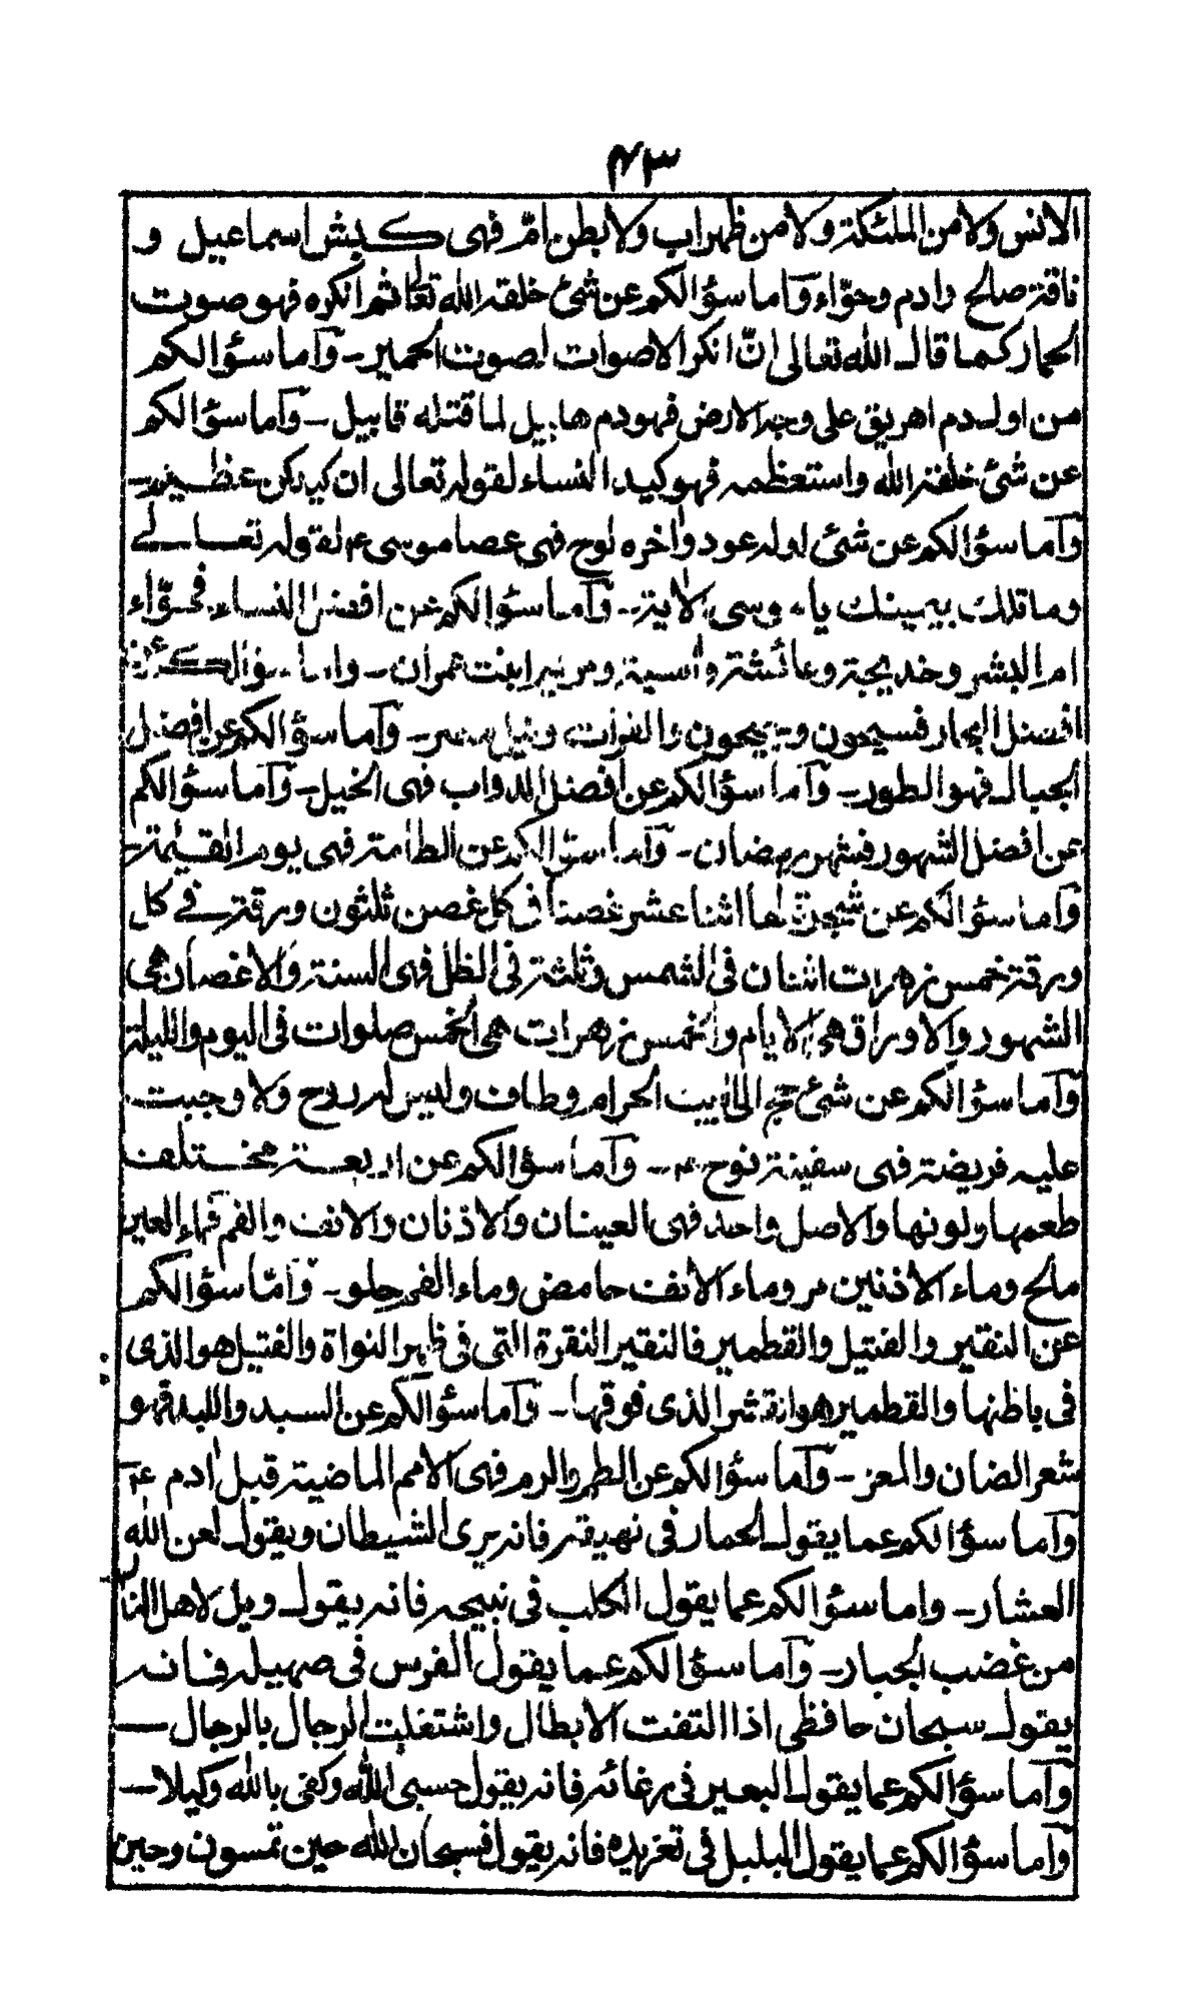 ٤٣
الانس ولا من الملئكة ولا من ظهر اب ولا بطن ام فهى كبش اسماعيل و
ناقة صالح وادم وحوّاء وآما سؤالكم عن شئ خلقه الله تعالى ثم انكره فهو صوت
الحمار كما قال الله تعالى انّ انكر الاصوات لصوت الحمير ـ وآما سؤالكم
من اول دم اهريق على وجه الارض فهو دم هابيل لما قتله قابيل ـ وآما سؤالكم
عن شئ خلقه الله واستعظمه فهو كيد النساء لقوله تعالى ان كيدكن عظيم ـ
وآما سؤالكم عن شئ اوله عود واخره لوح فهى عصا موسى ع لقوله تعالے
وما تلك بيمينك يا موسى الاية ـ وآما سؤالكم عن افضل النساء فحوّاء
ام البشر وخديجة وعائشة واسية ومريم ابنت عمران ـ واما سؤالكم عن
افضل البحار فسيحون وجيحون والفرات ونيل مصر ـ وآما سؤالكم عن افضل
الجبال فهو الطور ـ وآما سؤالكم عن افضل الدواب فهى الخيل ـ وآما سؤالكم
عن افضل الشهور فشهر رمضان ـ وآما سؤالكم عن الطامة فهى يوم القيٰمة ـ
وآما سؤالكم عن شجرة لها اثنا عشر غصنا فى كل غصن ثلثون ورقة فے كل
ورقة خمس زهرات اثنان فى الشمس وثلثة فى الظل فهى السنة والاغصان هى
الشهور والاوراق هى الايام والخمس زهرات هى الخمس صلوات فى اليوم والليلة
وآما سؤالكم عن شئ حج الى البيت الحرام وطاف وليس له روح ولا وجبت
عليه فريضة فهى سفينة نوح ع ـ وآما سؤالكم عن اربعة مختلف
طعمها ولونها والاصل واحد فهى العينان والاذنان والانف والفم فماء العين
ملح وماء الاذنين مر وماء الانف حامض وماء الفم حلو ـ وآمّا سؤالكم
عن النقير والفتيل والقطمير فالنقير النقرة التى فى ظهر النواة والفتيل هو الذى
فى باطنها والقطمير هو القشر الذى فوقها ـ وآما سؤالكم عن السبد واللبد فهو
شعر الضان والمعز ـ وآما سؤالكم عن الطم والرم فهى الامم الماضية قبل ادم ع
وآما سؤالكم عما يقول الحمار فى نهيقه فانه يرى الشيطان ويقول لعن الله
العشار ـ واما سؤالكم عما يقول الكلب فى نبيحه فانه يقول ويل لاهل النار
من غضب الجبار ـ وآما سؤالكم عما يقول الفرس فى صهيله فانه
يقول سبحان حافظى اذا التفت الابطال واشتغلت الرجال بالرجال ـ
وآما سؤالكم عما يقول البعير فى رغائه فانه يقول حسبى الله وكفى بالله وكيلا ـ
وآما سؤالكم عما يقول البلبل فى تغريده فانه يقول فسبحان الله حين تمسون وحين